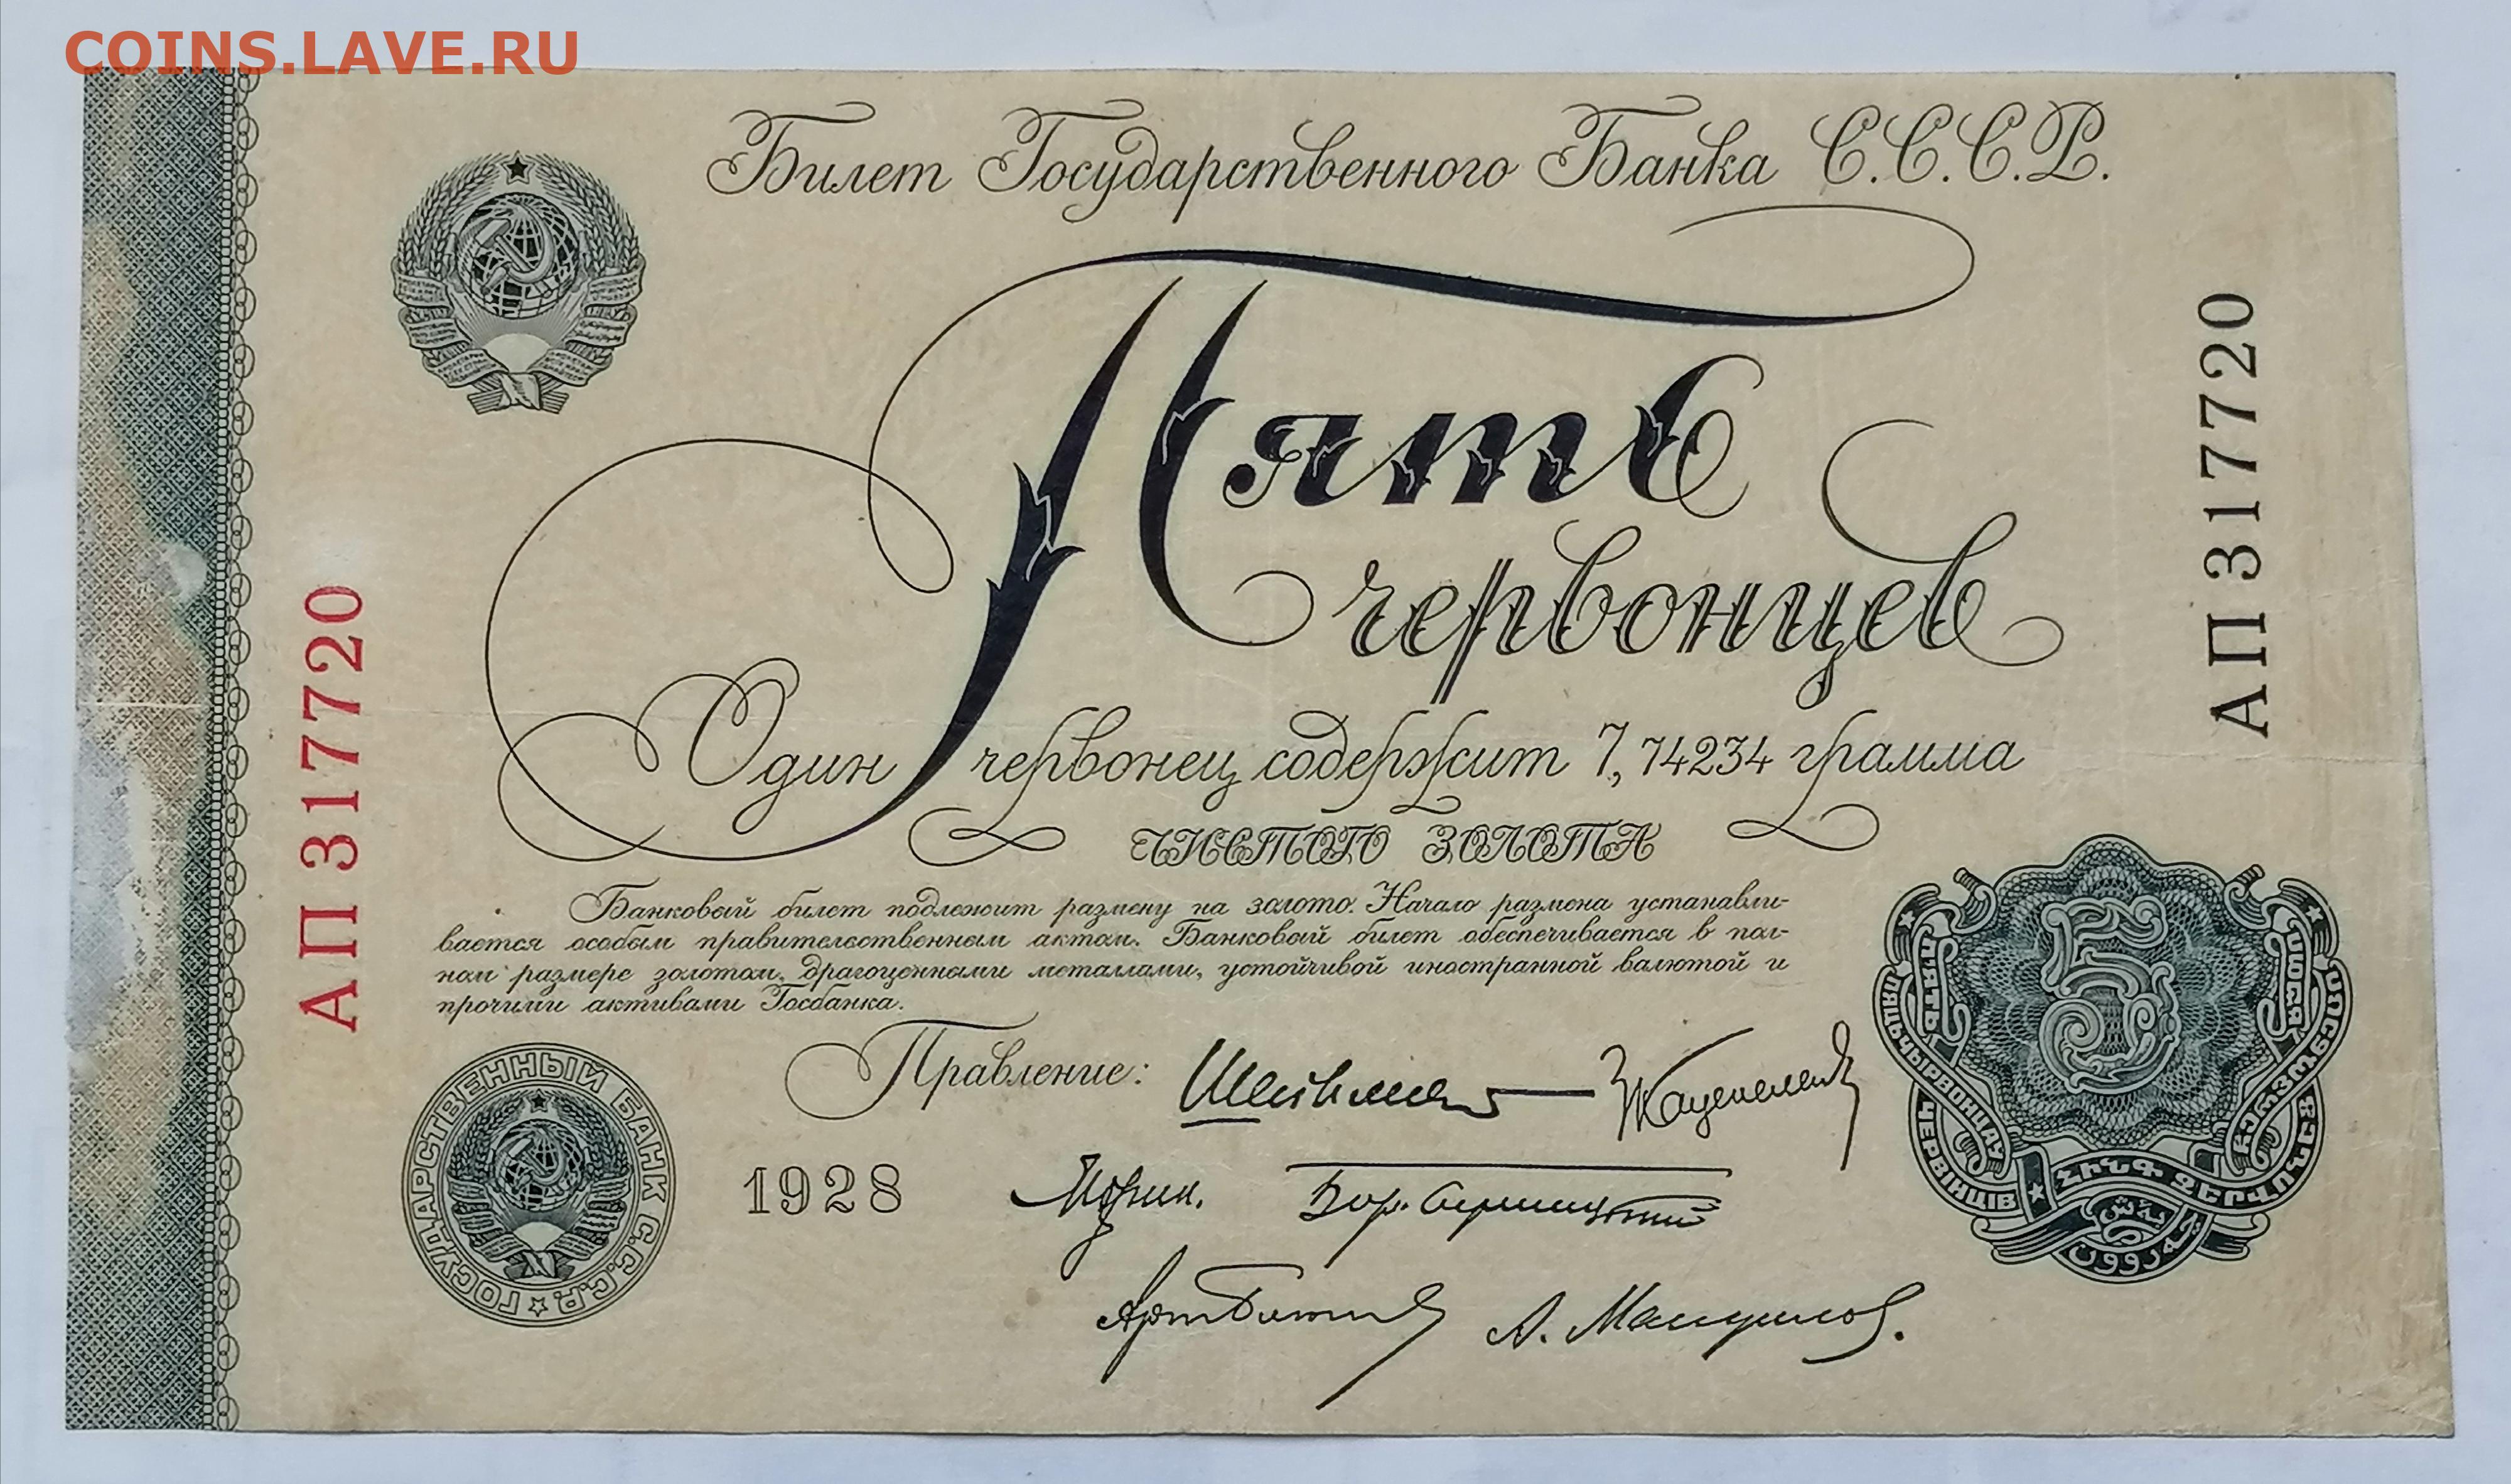 COINS.LAVE.RU
Билет Государственного Банка С.С.С.Р.
Пять
червонцев
Один червонец содержит 7,74234 грамма
ЧИСТОГО ЗОЛОТА
Банковый билет подлежит размену на золото. Начало размена устанавли-
вается особым правительственным актом. Банковый билет обеспечивается в пол-
ном размере золотом, драгоценными металлами, устойчивой иностранной валютой и
прочими активами Госбанка.
Правление:
1928
АП 317720
АП 317720
ГОСУДАРСТВЕННЫЙ БАНК С.С.С.Р.
5
ПЯТЬ
ЧЕРВОНЦІВ
ПЯЦЬ ЧЫРВОНЦАЎ
ՀԻՆԳ ՉԵՐՎՈՆԵՑ